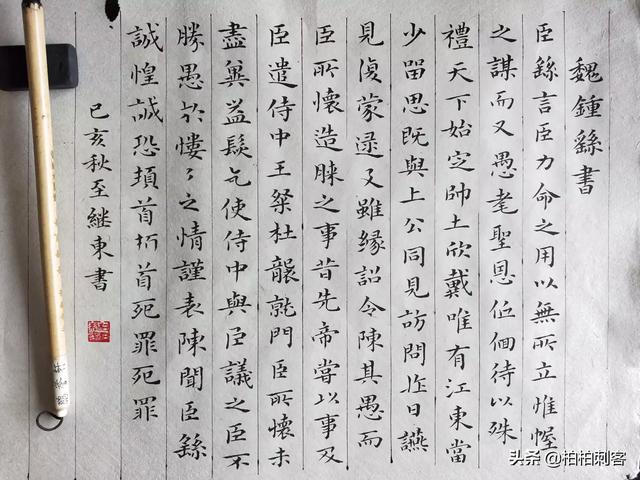 魏鍾繇書
臣繇言臣力命之用以無所立惟幄
之謀而又愚耄聖恩低佪待以殊
禮天下始定帥土欣戴唯有江東當
少留思既與上公同見訪問昨日讌
見復蒙逮及雖緣詔令陳其愚而
臣所懷造膝之事昔先帝嘗以事及
臣遣侍中王粲杜襲就門臣所懷未
盡冀益髮乞使侍中與臣議之臣不
勝愚於慺々之情謹表陳聞臣繇
誠惶誠恐頓首頓首死罪死罪
己亥秋至継東書
头条 @柏柏刺客